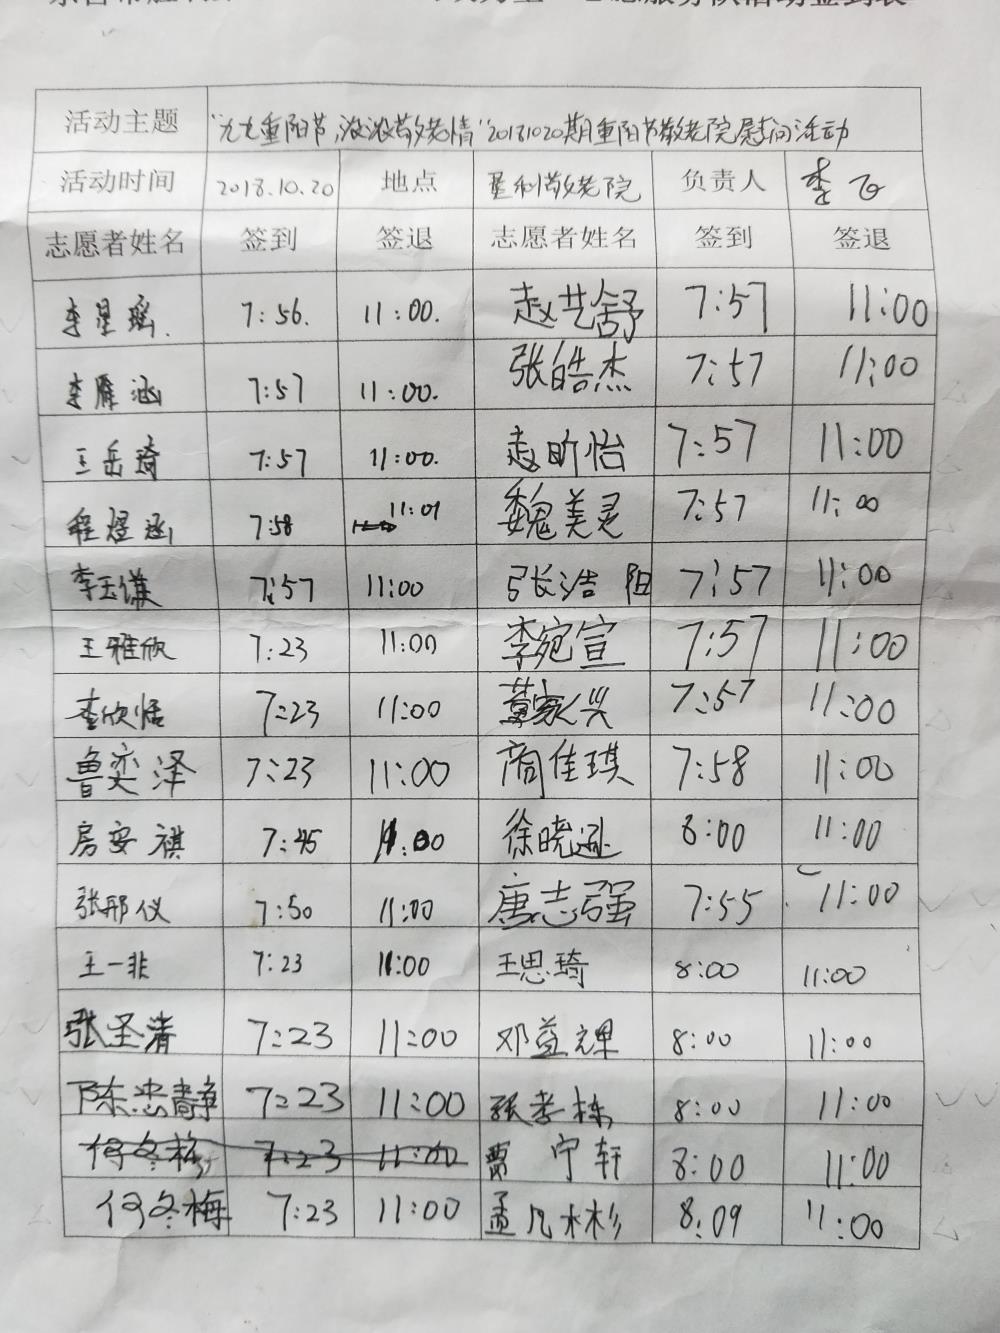 服务队活动签到表
活动主题 "九九重阳节,浓浓敬老情"20181020期重阳节敬老院慰问活动
活动时间 2018.10.20 地点 垦利敬老院 负责人 李飞
志愿者姓名 签到 签退 志愿者姓名 签到 签退
李星瑶. 7:56. 11:00. 赵艺舒 7:57 11:00
李雁涵 7:57 11:00. 张皓杰 7:57 11:00
王岳琦 7:57 11:00. 赵昕怡 7:57 11:00
程煜涵 7:58 11:01 魏美灵 7:57 11:00
李玉谦 7:57 11:00 张洁阳 7:57 11:00
王雅欣 7:23 11:00 李宛宣 7:57 11:00
李欣恬 7:23 11:00 7:57 11:00
鲁奕泽 7:23 11:00 周佳琪 7:58 11:00
房安祺 7:45 11:00 徐晓逊 8:00 11:00
张邢仪 7:50 11:00 唐志强 7:55 11:00
王一非 7:23 11:00 王思琦 8:00 11:00
张圣清 7:23 11:00 邓益辉 8:00 11:00
陈忠静 7:23 11:00 张孝栋 8:00 11:00
何冬梅 7:23 11:00 贾宁轩 8:00 11:00
何冬梅 7:23 11:00 孟凡彬杉 8:09 11:00